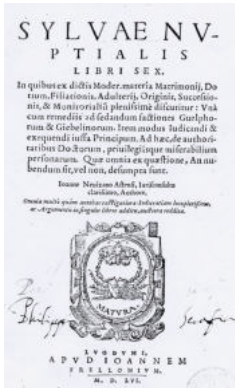 SYLVAE NV-
PTIALIS
LIBRI SEX.
In quibus ex dictis Moder. materia Matrimonij, Do-
tium, Filiationis, Adulterij, Originis, Successio-
nis, & Monitorialiũ plenissimè discutitur: Vnà
cum remedijs ad sedandum factiones Guelpho-
rum & Giebelinorum. Item modus Iudicandi &
exequendi iussa Principum. Ad hæc, de authori-
tatibus Doctorum, priuilegijsque miserabilium
personarum. Quæ omnia ex quæstione, An nu-
bendum sit, vel non, desumpta sunt.
Ioanne Neuizano Astensi, Iurisconsulto
clarissimo, Authore.
Omnia multò quàm antehac castigatiora
ac Argumentis in singulos libros
MATVRA.
Philippe
LVGDVNI,
APVD IOANNEM
FRELLONIVM.
M. D. LVI.